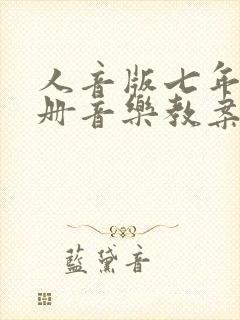 人音版七年
册音樂教案
藍黛音